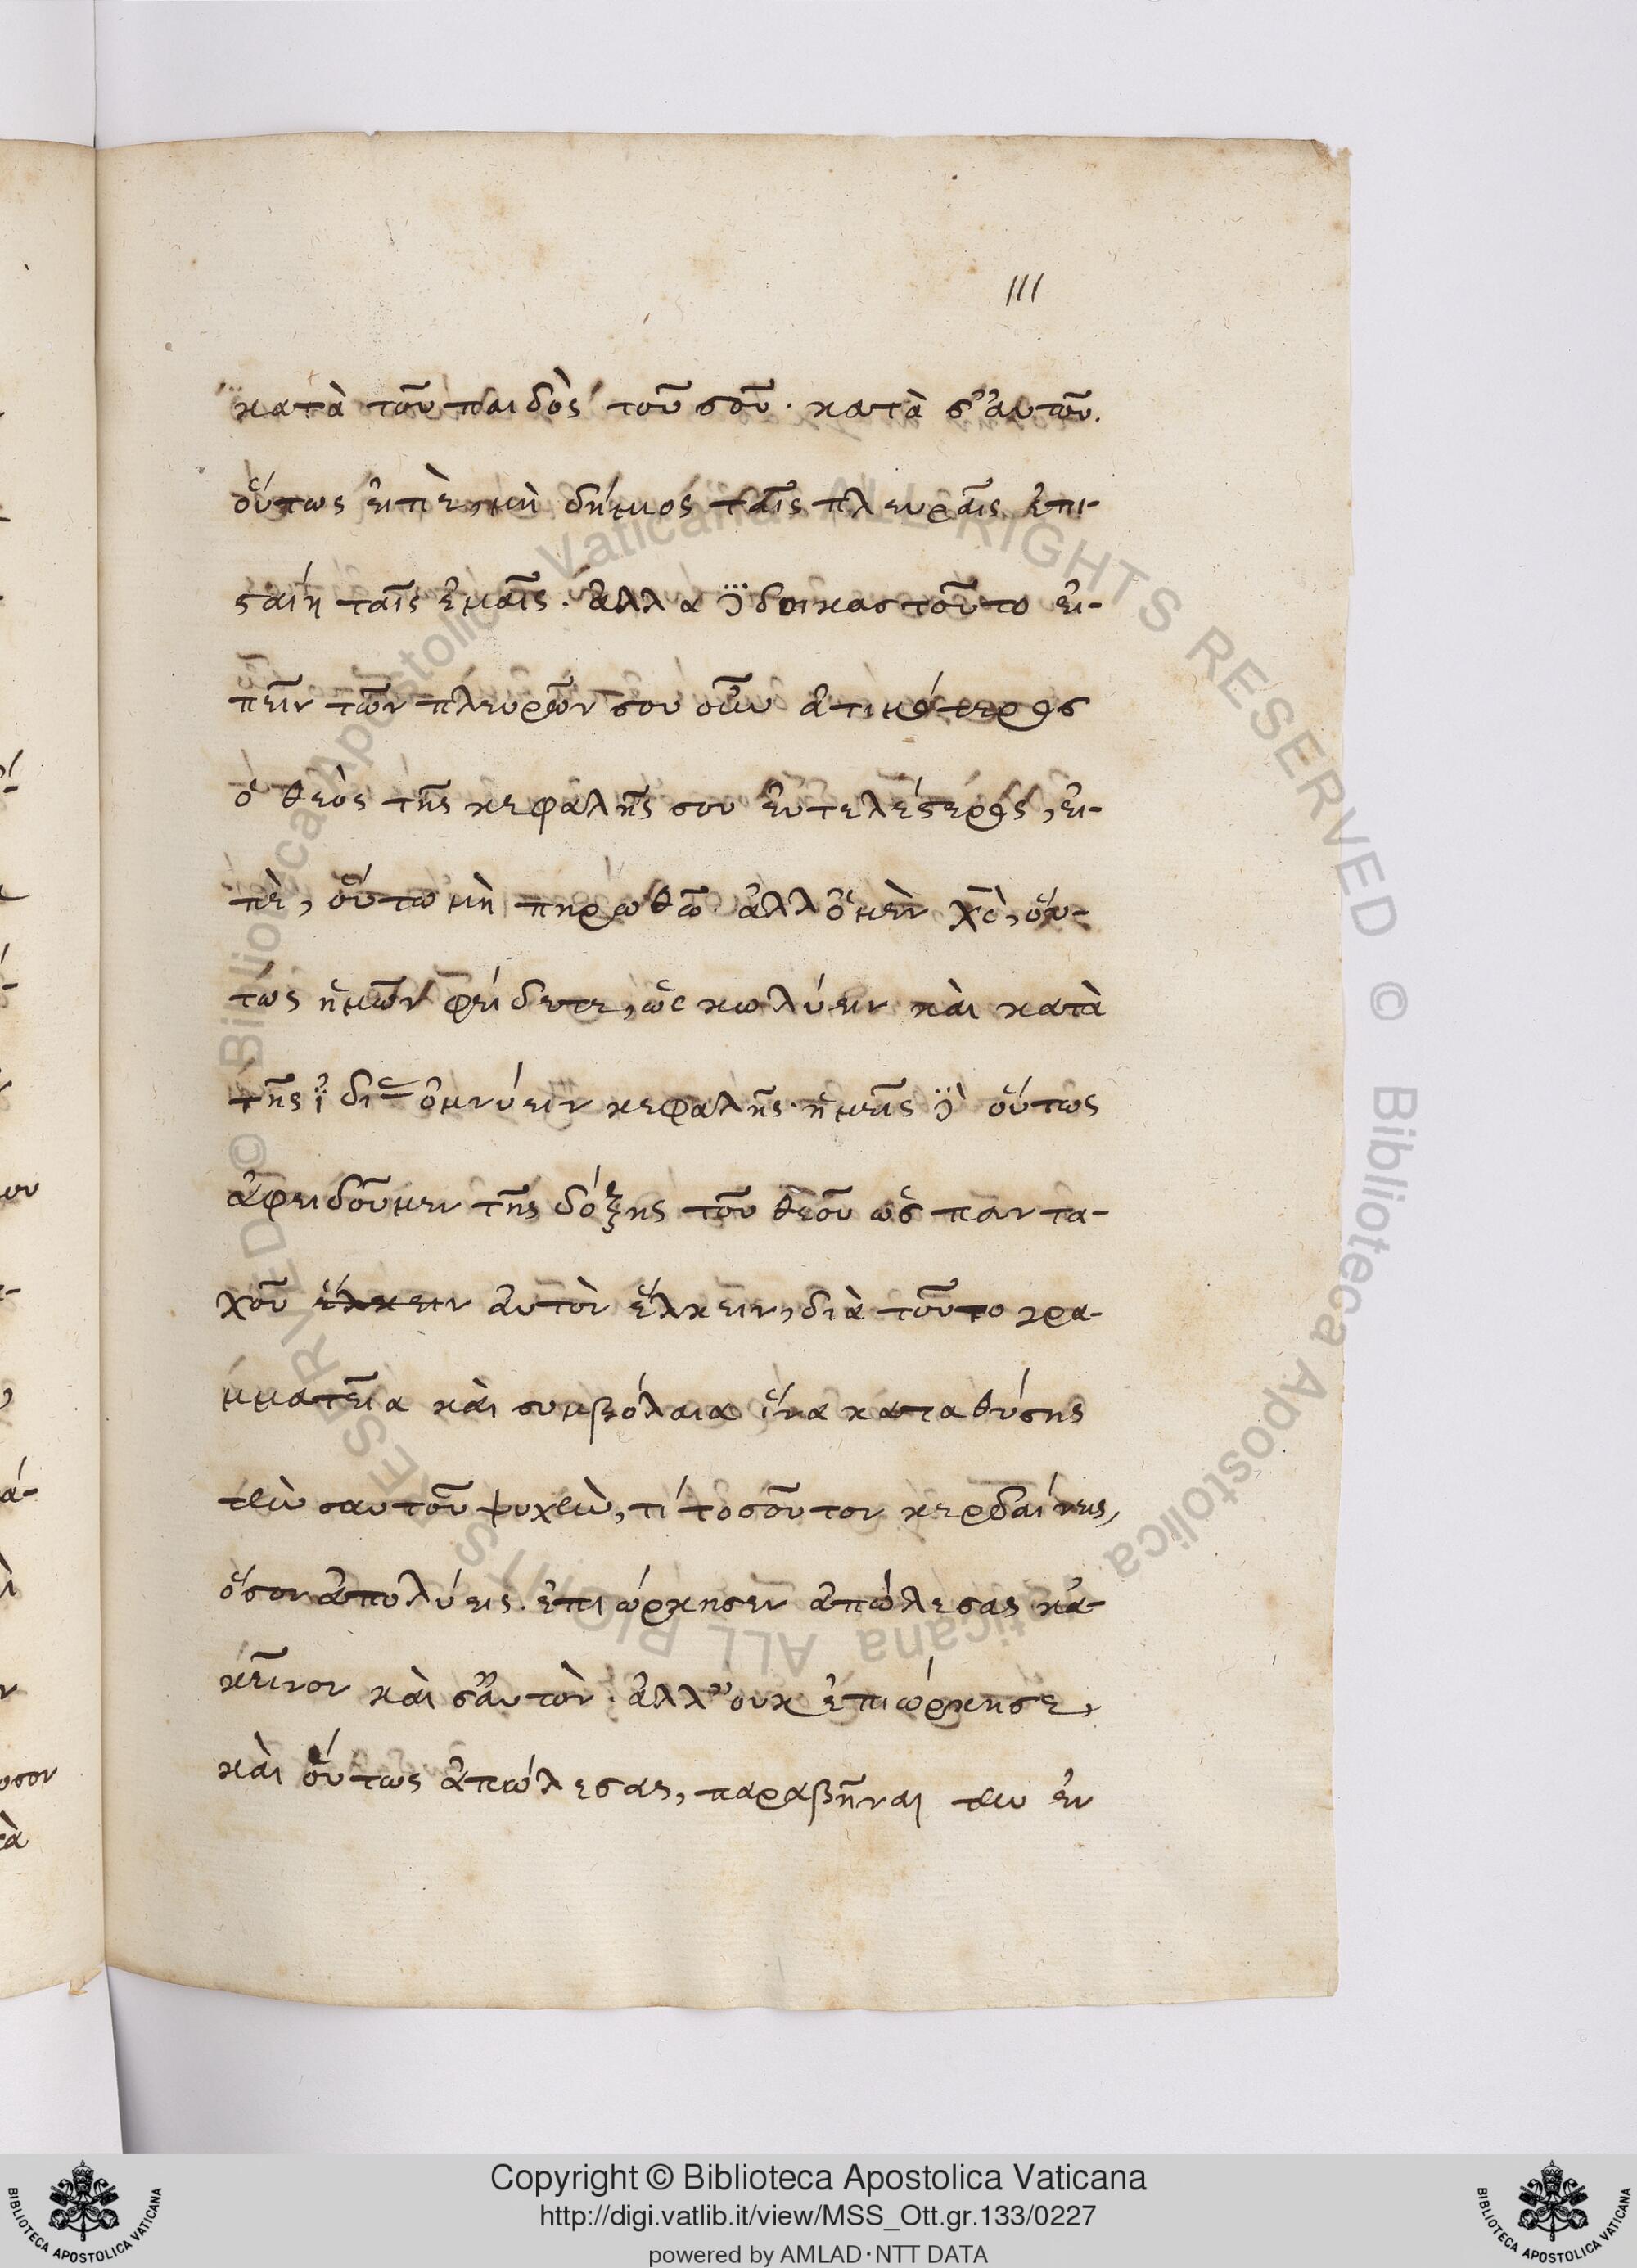 111
κατὰ τοῦ παιδὸς τοῦ σοῦ. κατὰ σ'αυτοῦ.
οὕτως ἐιπὲ, μὴ δήμιος ταῖς πλευραῖς ἐπι-
σταίη ταῖς ἐμαῖς. ἀλλα δέδοικας τοῦτο ἐι-
πεῖν τῶν πλευρῶν σου οὖν ἀτιμότερος
ὁ θεὸς τῆς κεφαλῆς σου ἐυτελέστερος, ἐι-
πὲ, οὕτω μὴ πηρωθῶ. ἀλλ ὁ μὲν χς̄, οὕ-
τως ἡμῶν φείδεται, ὡς κωλύειν κὰι κατὰ
τῆς ϊδίας ὀμνύειν κεφαλῆς. ἡμεῖς δὲ οὕτως
ἀφειδοῦμεν τῆς δόξης τοῦ θεοῦ ὡς παντα-
χοῦ ἕλκειν ἀυτὸν ἕλκειν, διὰ τοῦτο γρα-
μματεῖα κὰι συμβόλαια ἵνα καταθύσης
τὴν σαυτοῦ ψυχὴν, τί τοσοῦτον κερδαίνεις,
ὅσον ἀπολύεις. ἐπιώρκησεν ἀπώλεσας κἀ-
κεῖνον κὰι σἀυτὸν. ἀλλ' ουκ ἐπιώρκησε,
κὰι οὕτως ἀπώλεσας, παραβῆναι τὴν ἐν
Copyright © Biblioteca Apostolica Vaticana
http://digi.vatlib.it/view/MSS_Ott.gr.133/0227
powered by AMLAD·NTT DATA
BIBLIOTECA APOSTOLICA VATICANA
BIBLIOTECA APOSTOLICA VATICANA
© Biblioteca Apostolica Vaticana ALL RIGHTS RESERVED © Biblioteca Apostolica Vaticana ALL RIGHTS RESERVED